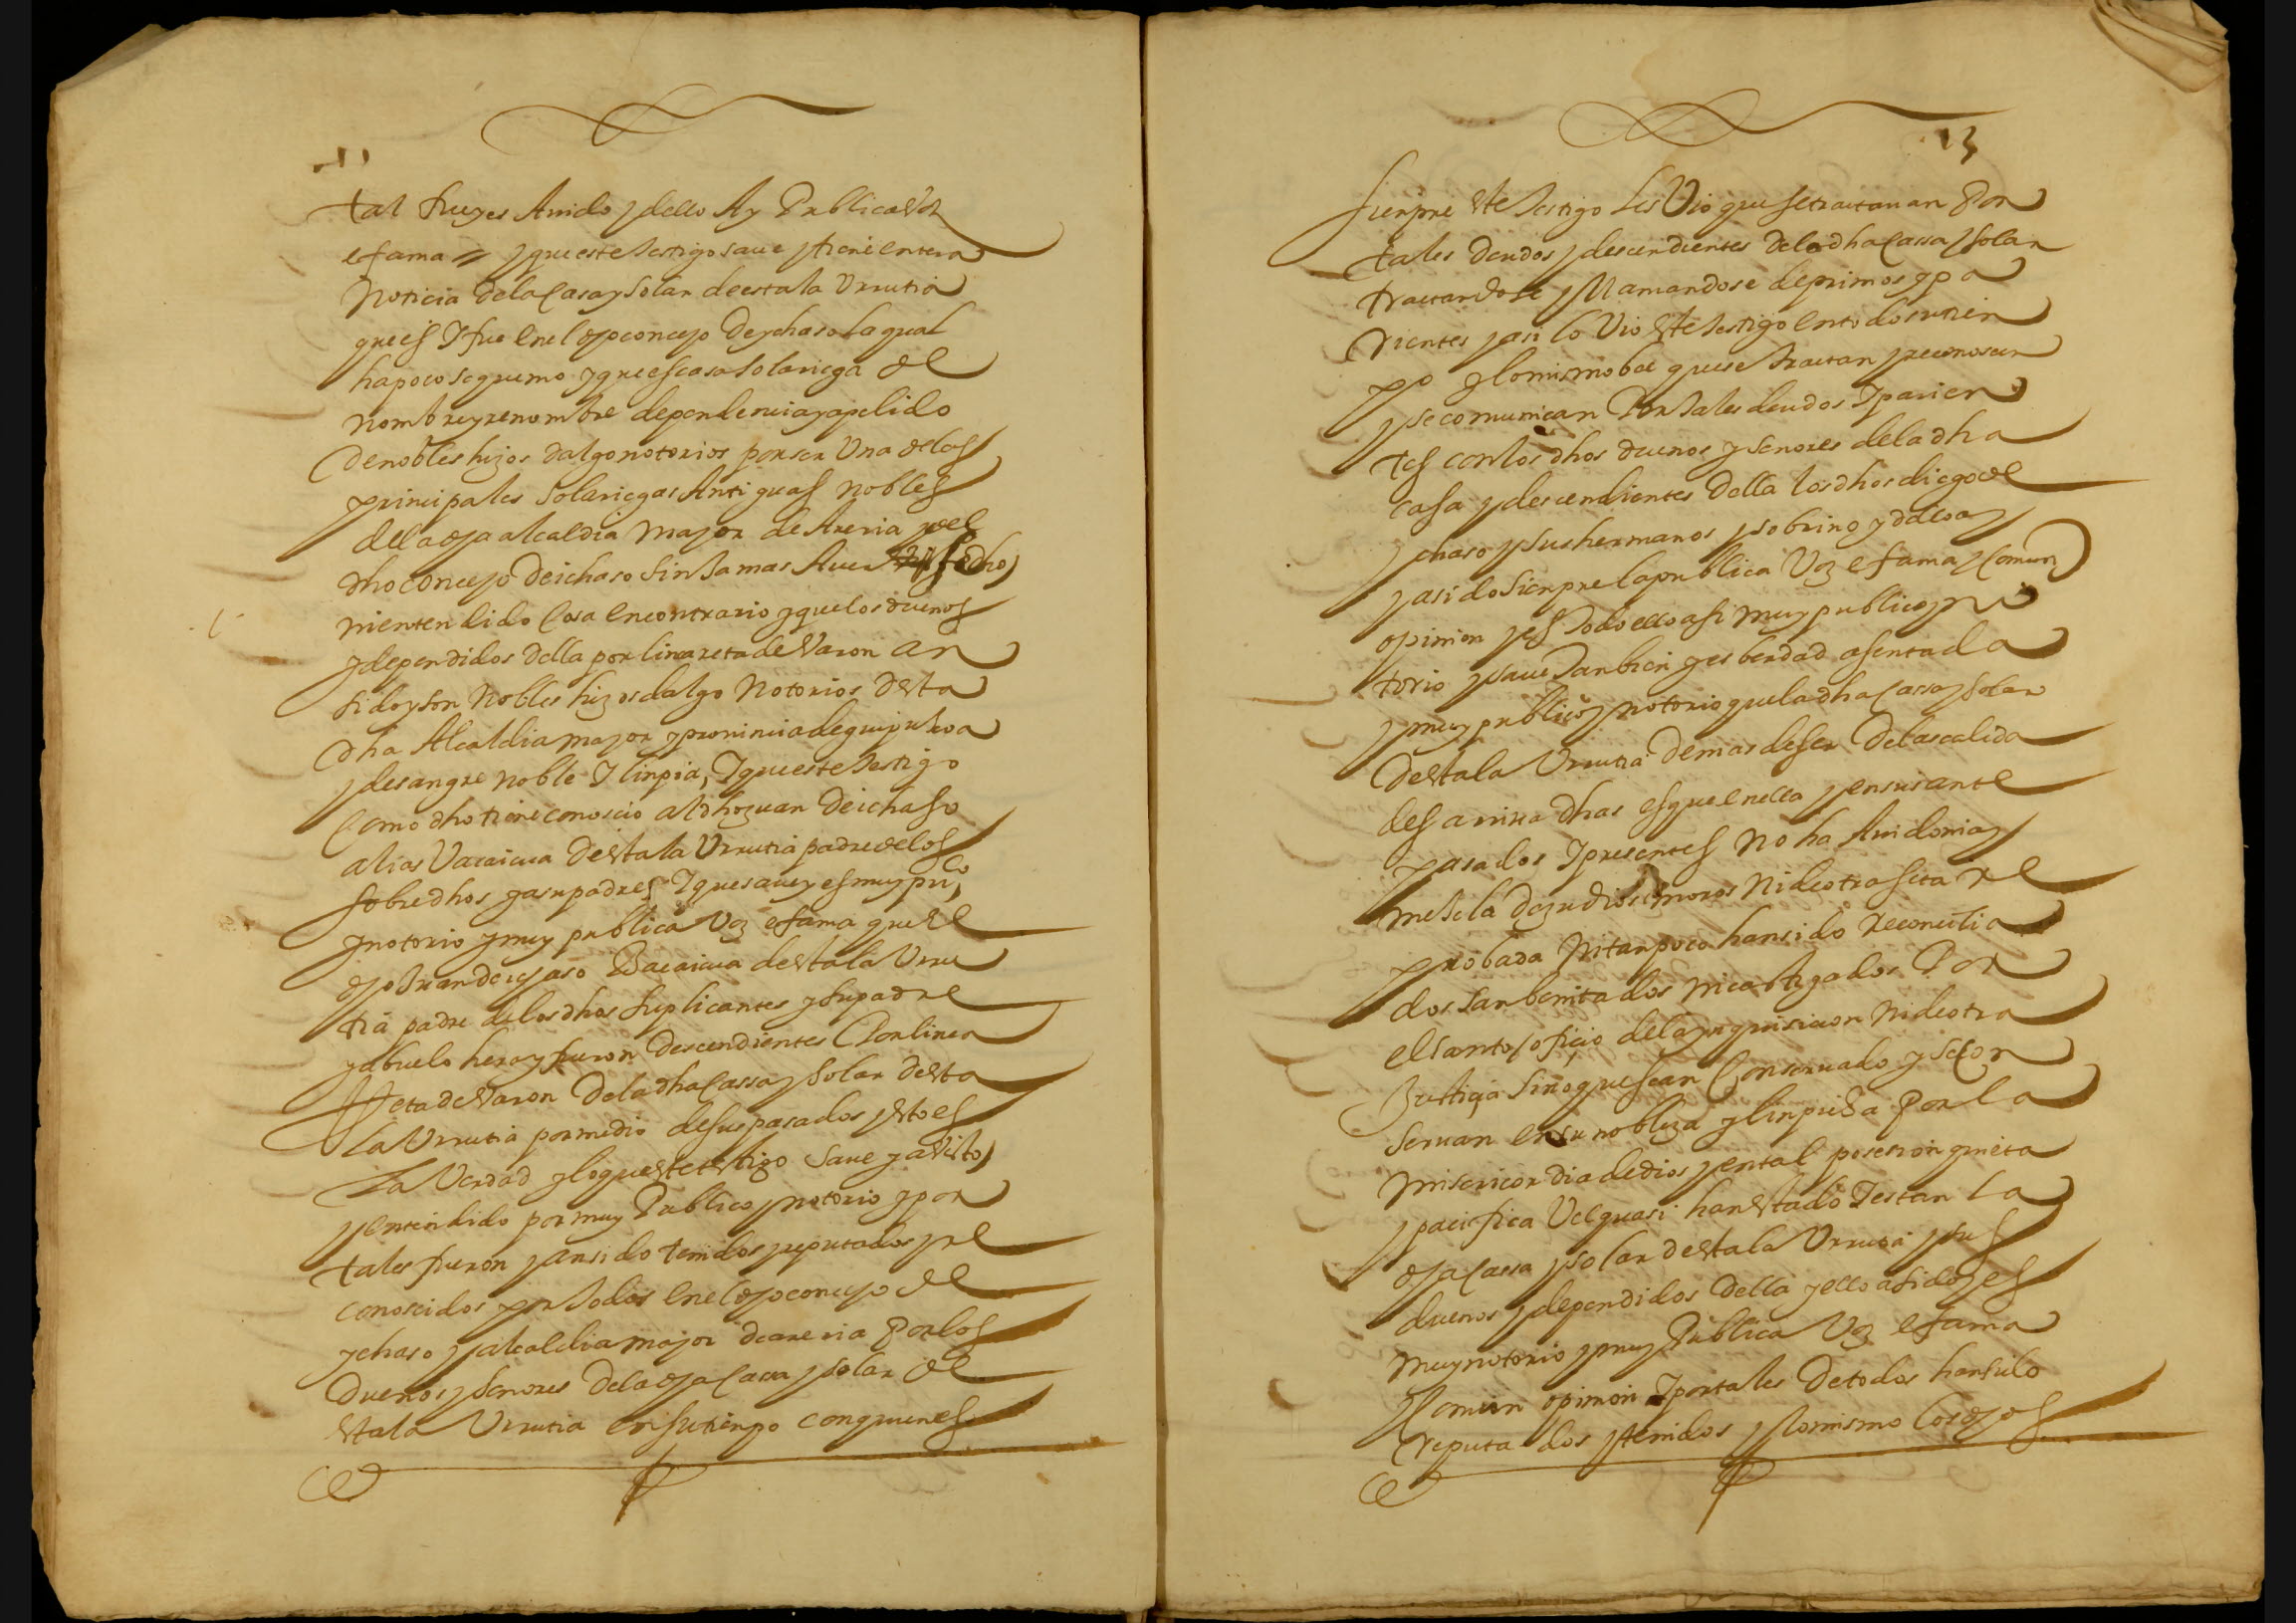 tal fue y es Auido y dello Ay Publica Voz
e fama y que este testigo saue y tiene entera
noticia dela Casa y Solar de estala Vrrutia
que es Y fue en el dho concejo De ychaso la qual
ha poco se quemo y que es casa solariega de
nombre y renombre dependencia y apelido
De nobles hijos dalgo notorios por ser Vna de las
principales Solariegas Antiguas nobles
dela dha alcaldia mayor de Areria y del
dho concejo de ichaso sin Jamas Auer
ni entendido Cosa en contrario y que los duenos
y dependidos della por linea reta de Varon an
sido y son Nobles hijos dalgo Notorios desta
dha Alcaldia mayor y prouincia de guipuzcoa
y de sangre noble Y linpia, Y que este testigo
Como dho tiene conoscio al dho juan de ichaso
alias Vacaicua de estala Vrrutia padre de los
sobredhos y a su padre Y que saue y es muy pu,co
y notorio y muy publica Voz e fama que el
dho Juan de ichaso Bacaicua de estala Vrru
tia padre de los dhos suplicantes y su padre
y abuelo hera y fueron Descendientes Por linea
Reta de Varon De la dha Cassa y Solar de esta
la Vrrutia por medio de sus pasados y esto es
La Verdad y lo que este testigo saue y a Visto
y entendido por muy Publico y notorio y por
tales fueron y an sido tenidos y reputados y re
conoscidos por todos en el dho concejo de
ychaso y alcaldia mayor de areria Por los
Duenos y Senores De la dha Cassa y solar de
estala Vrrutia en su tienpo con quienes
13
sienpre este testigo les Vio que se tractauan Por
tales deudos y descendientes de la dha Cassa y solar
tractandose y llamandose de primos y pa
rientes y asi lo Vio este testigo en todo su tien
po y lo mismo bee que se tractan y reconoscen
y se comunican Por tales deudos Y parien
tes con los dhos duenos y senores de la dha
casa y descendientes della los dhos diego de
ychaso y sus hermanos y sobrino y dello ay
y a sido sienpre la publica Voz e fama y Comun
opinion y es todo ello asi muy publico y no
torio y saue tanbien y es berdad asentada
y muy publico y notorio que la dha Cassa y solar
de estala Vrrutia demas de ser De las calida
des arriua dhas es que en ella y en sus ante
pasados Y presentes no ha Auido ni ay
mescla de judios ni moros ni de otra seta re
probada ni tanpoco han sido Reconcilia
dos sanbenitados ni castigados Por
el santo oficio de la ynquisicion ni de otra
Justicia sino que se an Conseruado y se con
seruan en su nobleza y linpieza Por la
misericordia de dios y en tal posesion quieta
y pacifica Vel quasi han estado Y estan la
dha Cassa y solar de estala Vrrutia y sus
duenos y dependidos della y ello a sido y es
muy notorio y muy Publica Voz e fama
y Comun opinion Y por tales De todos han sido
reputados y tenidos y lo mismo los dhos